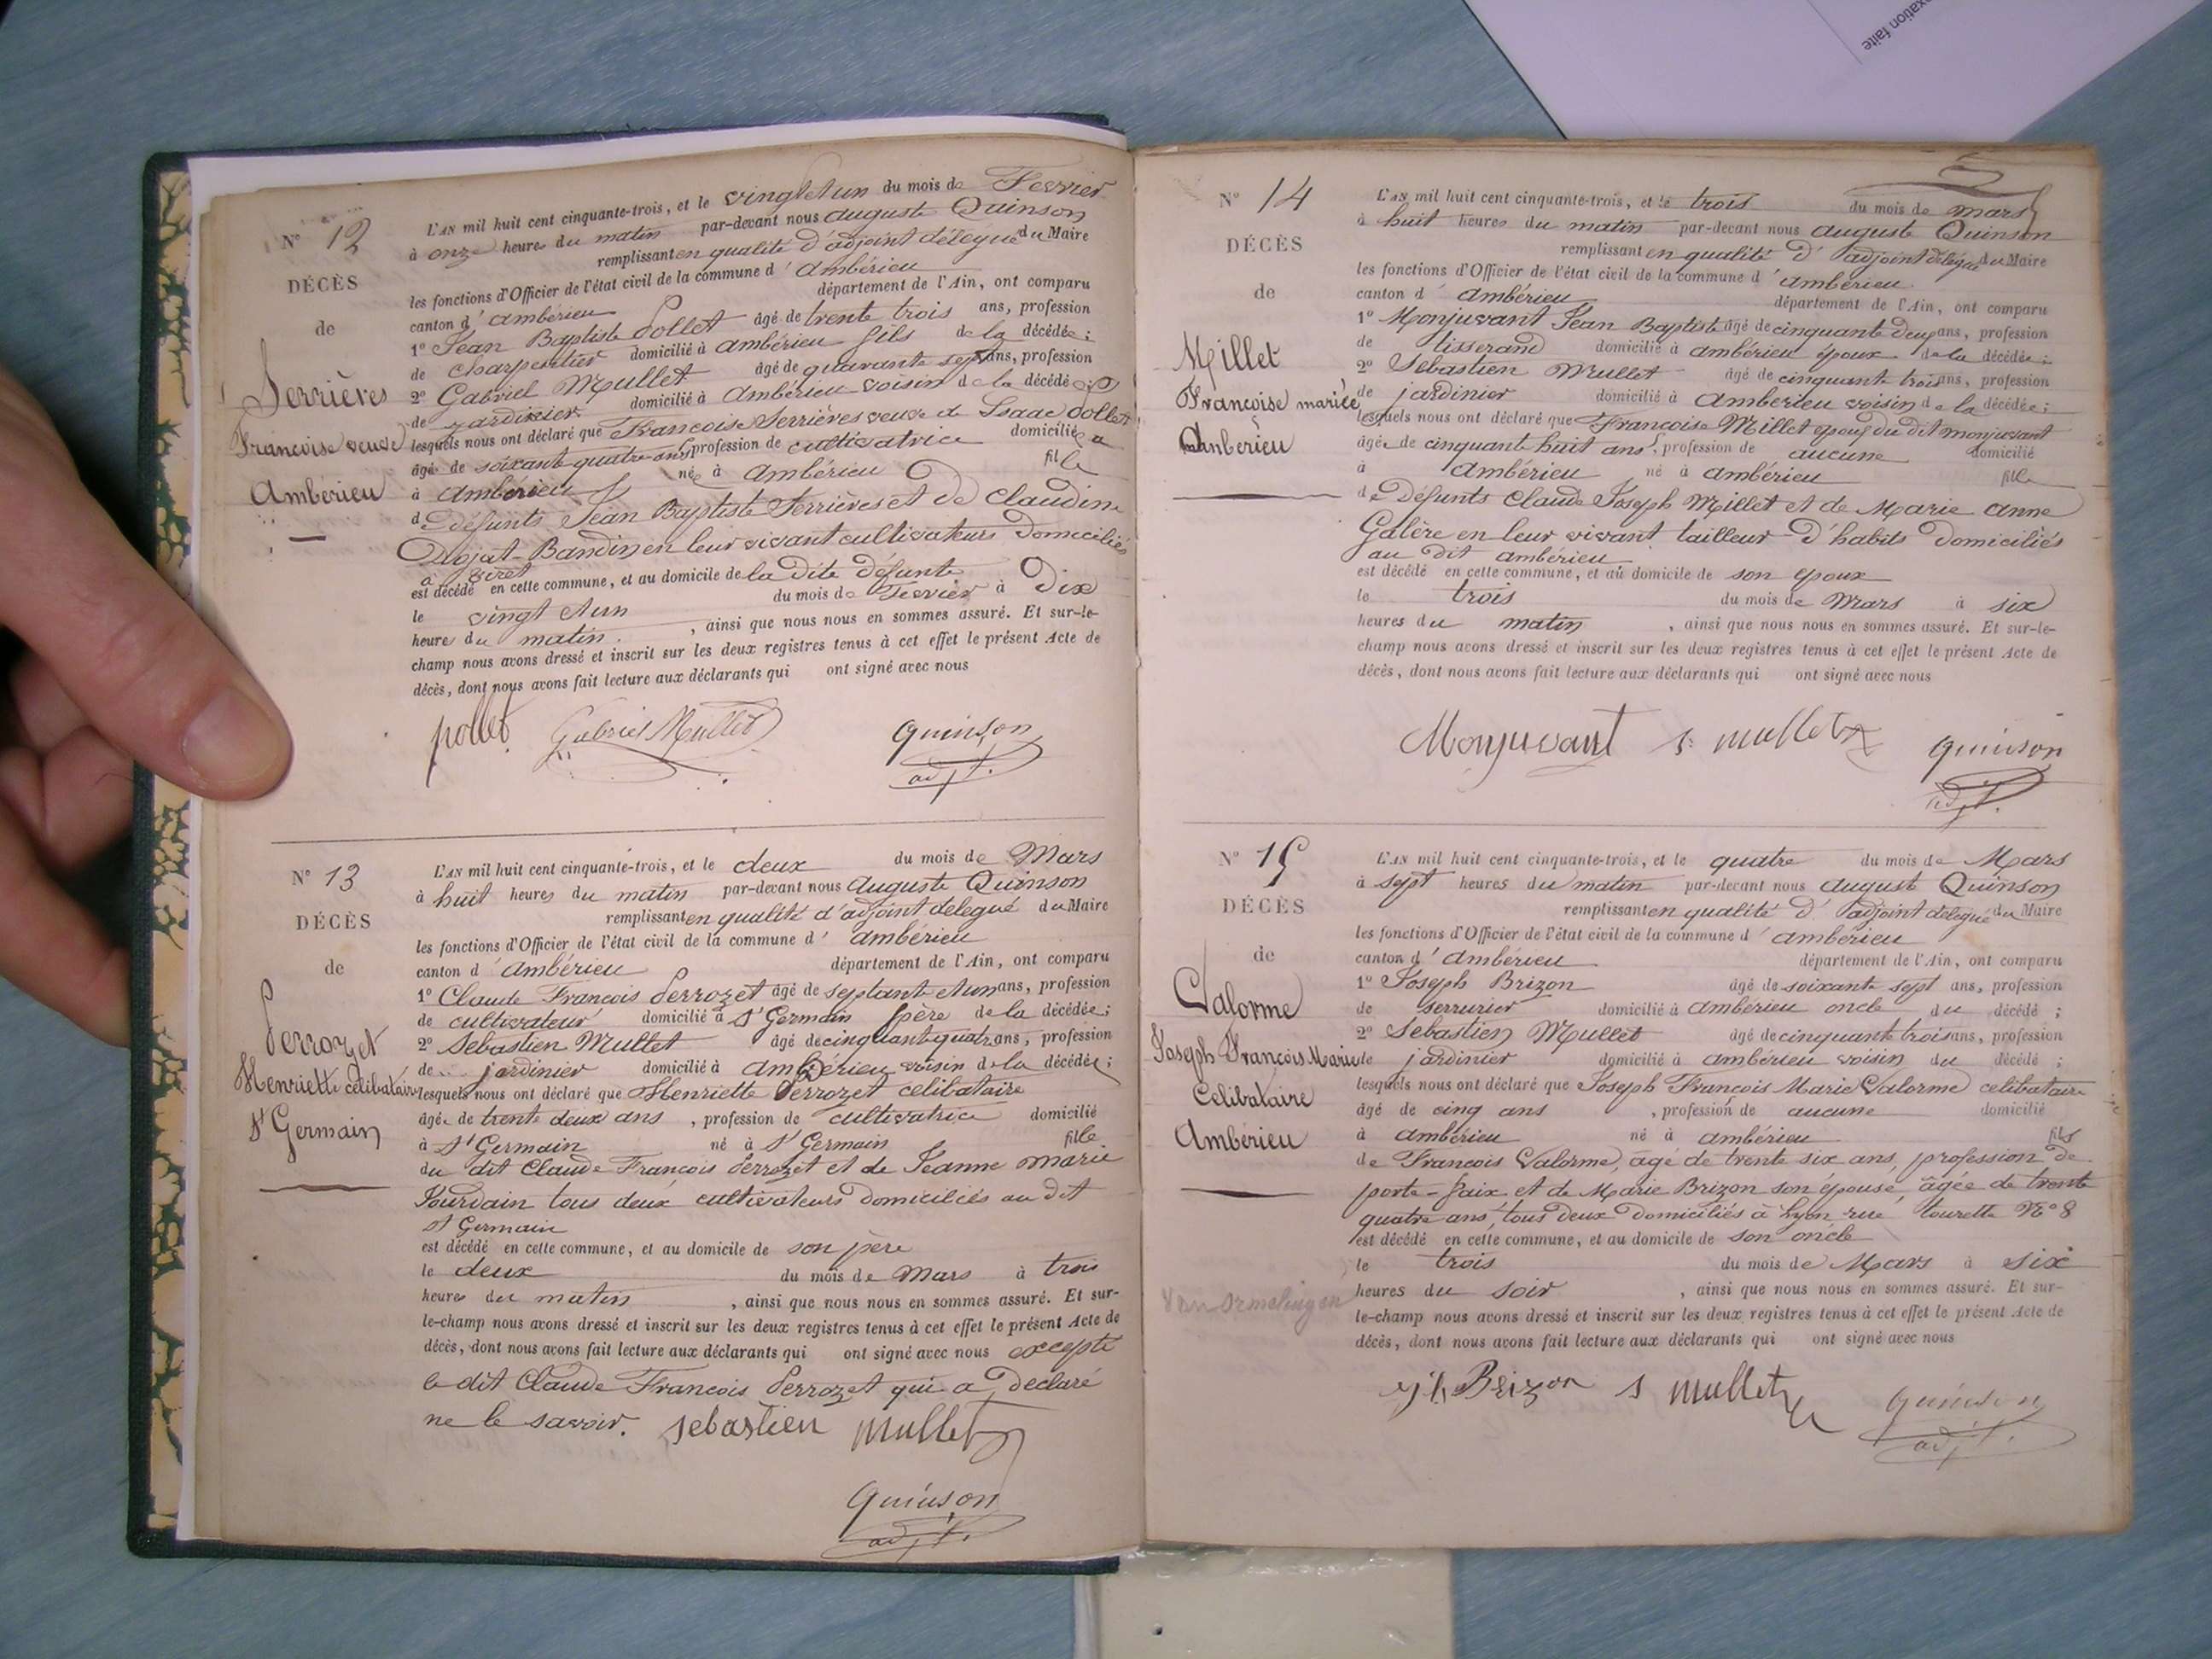 xation faite
N° 12
DÉCÈS
de
Serrières
Francoise veuve
Ambérieu
L'AN mil huit cent cinquante-trois, et le vingt et un du mois de Fevrier
à onze heures du matin par-devant nous auguste Quinson
remplissant en qualité d'adjoint délégué du Maire
les fonctions d'Officier de l'état civil de la commune d' ambérieu
canton d' ambérieu département de l'Ain, ont comparu
1° Jean Baptiste Pollet âgé de trente trois ans, profession
de charpentier domicilié à ambérieu fils de la décédée ;
2° Gabriel Mullet âgé de quarante sept ans, profession
de jardinier domicilié à Ambérieu voisin de la décédé
lesquels nous ont déclaré que Francoise Serrières veuve de Isaac Pollet
âgé de soixante quatre ans profession de cultivatrice domicilié a
à ambérieu né à Ambérieu fille
de défunts Jean Baptiste Serrières et de Claudine
Bandin en leur vivant cultivateurs Domiciliés
est décédé en cette commune, et au domicile de la dite défunte
le vingt et un du mois de Fevrier à Dix
heures du matin , ainsi que nous nous en sommes assuré. Et sur-le-
champ nous avons dressé et inscrit sur les deux registres tenus à cet effet le présent Acte de
décès, dont nous avons fait lecture aux déclarants qui ont signé avec nous
pollet Gabriel Mullet quinson
adjt.
N° 13
DÉCÈS
de
Perrozet
Henriette célibataire
St Germain
L'AN mil huit cent cinquante-trois, et le deux du mois de Mars
à huit heures du matin par-devant nous auguste Quinson
remplissant en qualité d'adjoint delegué du Maire
les fonctions d'Officier de l'état civil de la commune d' ambérieu
canton d' ambérieu département de l'Ain, ont comparu
1° Claude Francois Perrozet âgé de septante et un ans, profession
de cultivateur domicilié à St Germain père de la décédée ;
2° Sebastien Mullet âgé de cinquante quatre ans, profession
de jardinier domicilié à ambérieu voisin de la décédée ;
lesquels nous ont déclaré que Henriette Perrozet celibataire
âgée de trente deux ans , profession de cultivatrice domicilié
à St Germain né à St Germain fille
du dit Claude Francois Perrozet et de Jeanne marie
Jourdain tous deux cultivateurs domiciliés au dit
St Germain
est décédé en cette commune, et au domicile de son père
le deux du mois de Mars à trois
heures du matin , ainsi que nous nous en sommes assuré. Et sur-
le-champ nous avons dressé et inscrit sur les deux registres tenus à cet effet le présent Acte de
décès, dont nous avons fait lecture aux déclarants qui ont signé avec nous excepté
le dit Claude Francois Perrozet qui a declaré
ne le savoir. sebastien mullet
quinson
adjt.
N° 14
DÉCÈS
de
Millet
Françoise mariée
Ambérieu
L'AN mil huit cent cinquante-trois, et le trois du mois de mars
à huit heures du matin par-devant nous auguste Quinson
remplissant en qualité d' adjoint délégué du Maire
les fonctions d'Officier de l'état civil de la commune d' ambérieu
canton d' ambérieu département de l'Ain, ont comparu
1° Monjuvant Jean Baptiste âgé de cinquante deux ans, profession
de tisserand domicilié à ambérieu époux de la décédée ;
2° Sebastien Mullet âgé de cinquante trois ans, profession
de jardinier domicilié à Ambérieu voisin de la décédée ;
lesquels nous ont déclaré que Françoise Millet epouse du dit monjuvant
âgée de cinquante huit ans , profession de aucune domicilié
à ambérieu né à ambérieu fille
de Défunts Claude Joseph Millet et de Marie anne
Galère en leur vivant tailleur d'habits Domiciliés
au dit ambérieu
est décédé en cette commune, et au domicile de son epoux
le trois du mois de Mars à six
heures du matin , ainsi que nous nous en sommes assuré. Et sur-le-
champ nous avons dressé et inscrit sur les deux registres tenus à cet effet le présent Acte de
décès, dont nous avons fait lecture aux déclarants qui ont signé avec nous
Monjuvant s. mullet quinson
adjt.
N° 15
DÉCÈS
de
Valorme
Joseph François Marie
Celibataire
Ambérieu
L'AN mil huit cent cinquante-trois, et le quatre du mois de Mars
à sept heures du matin par-devant nous auguste Quinson
remplissant en qualité d' adjoint délégué du Maire
les fonctions d'Officier de l'état civil de la commune d' ambérieu
canton d' ambérieu département de l'Ain, ont comparu
1° Joseph Brizon âgé de soixante sept ans, profession
de serrurier domicilié à ambérieu oncle du décédé ;
2° Sebastien Mullet âgé de cinquante trois ans, profession
de jardinier domicilié à ambérieu voisin du décédé ;
lesquels nous ont déclaré que Joseph François Marie Valorme celibataire
âgé de cinq ans , profession de aucune domicilié
à ambérieu né à ambérieu fils
de Francois Valorme, âgé de trente six ans, profession de
porte-faix et de Marie Brizon son épouse, âgée de trente
quatre ans, tous deux Domiciliés à Lyon rue tourette N° 8
est décédé en cette commune, et au domicile de son oncle
le trois du mois de Mars à six
heures du soir , ainsi que nous nous en sommes assuré. Et sur-
le-champ nous avons dressé et inscrit sur les deux registres tenus à cet effet le présent Acte de
décès, dont nous avons fait lecture aux déclarants qui ont signé avec nous
Brizon s mullet quinson
adjt.